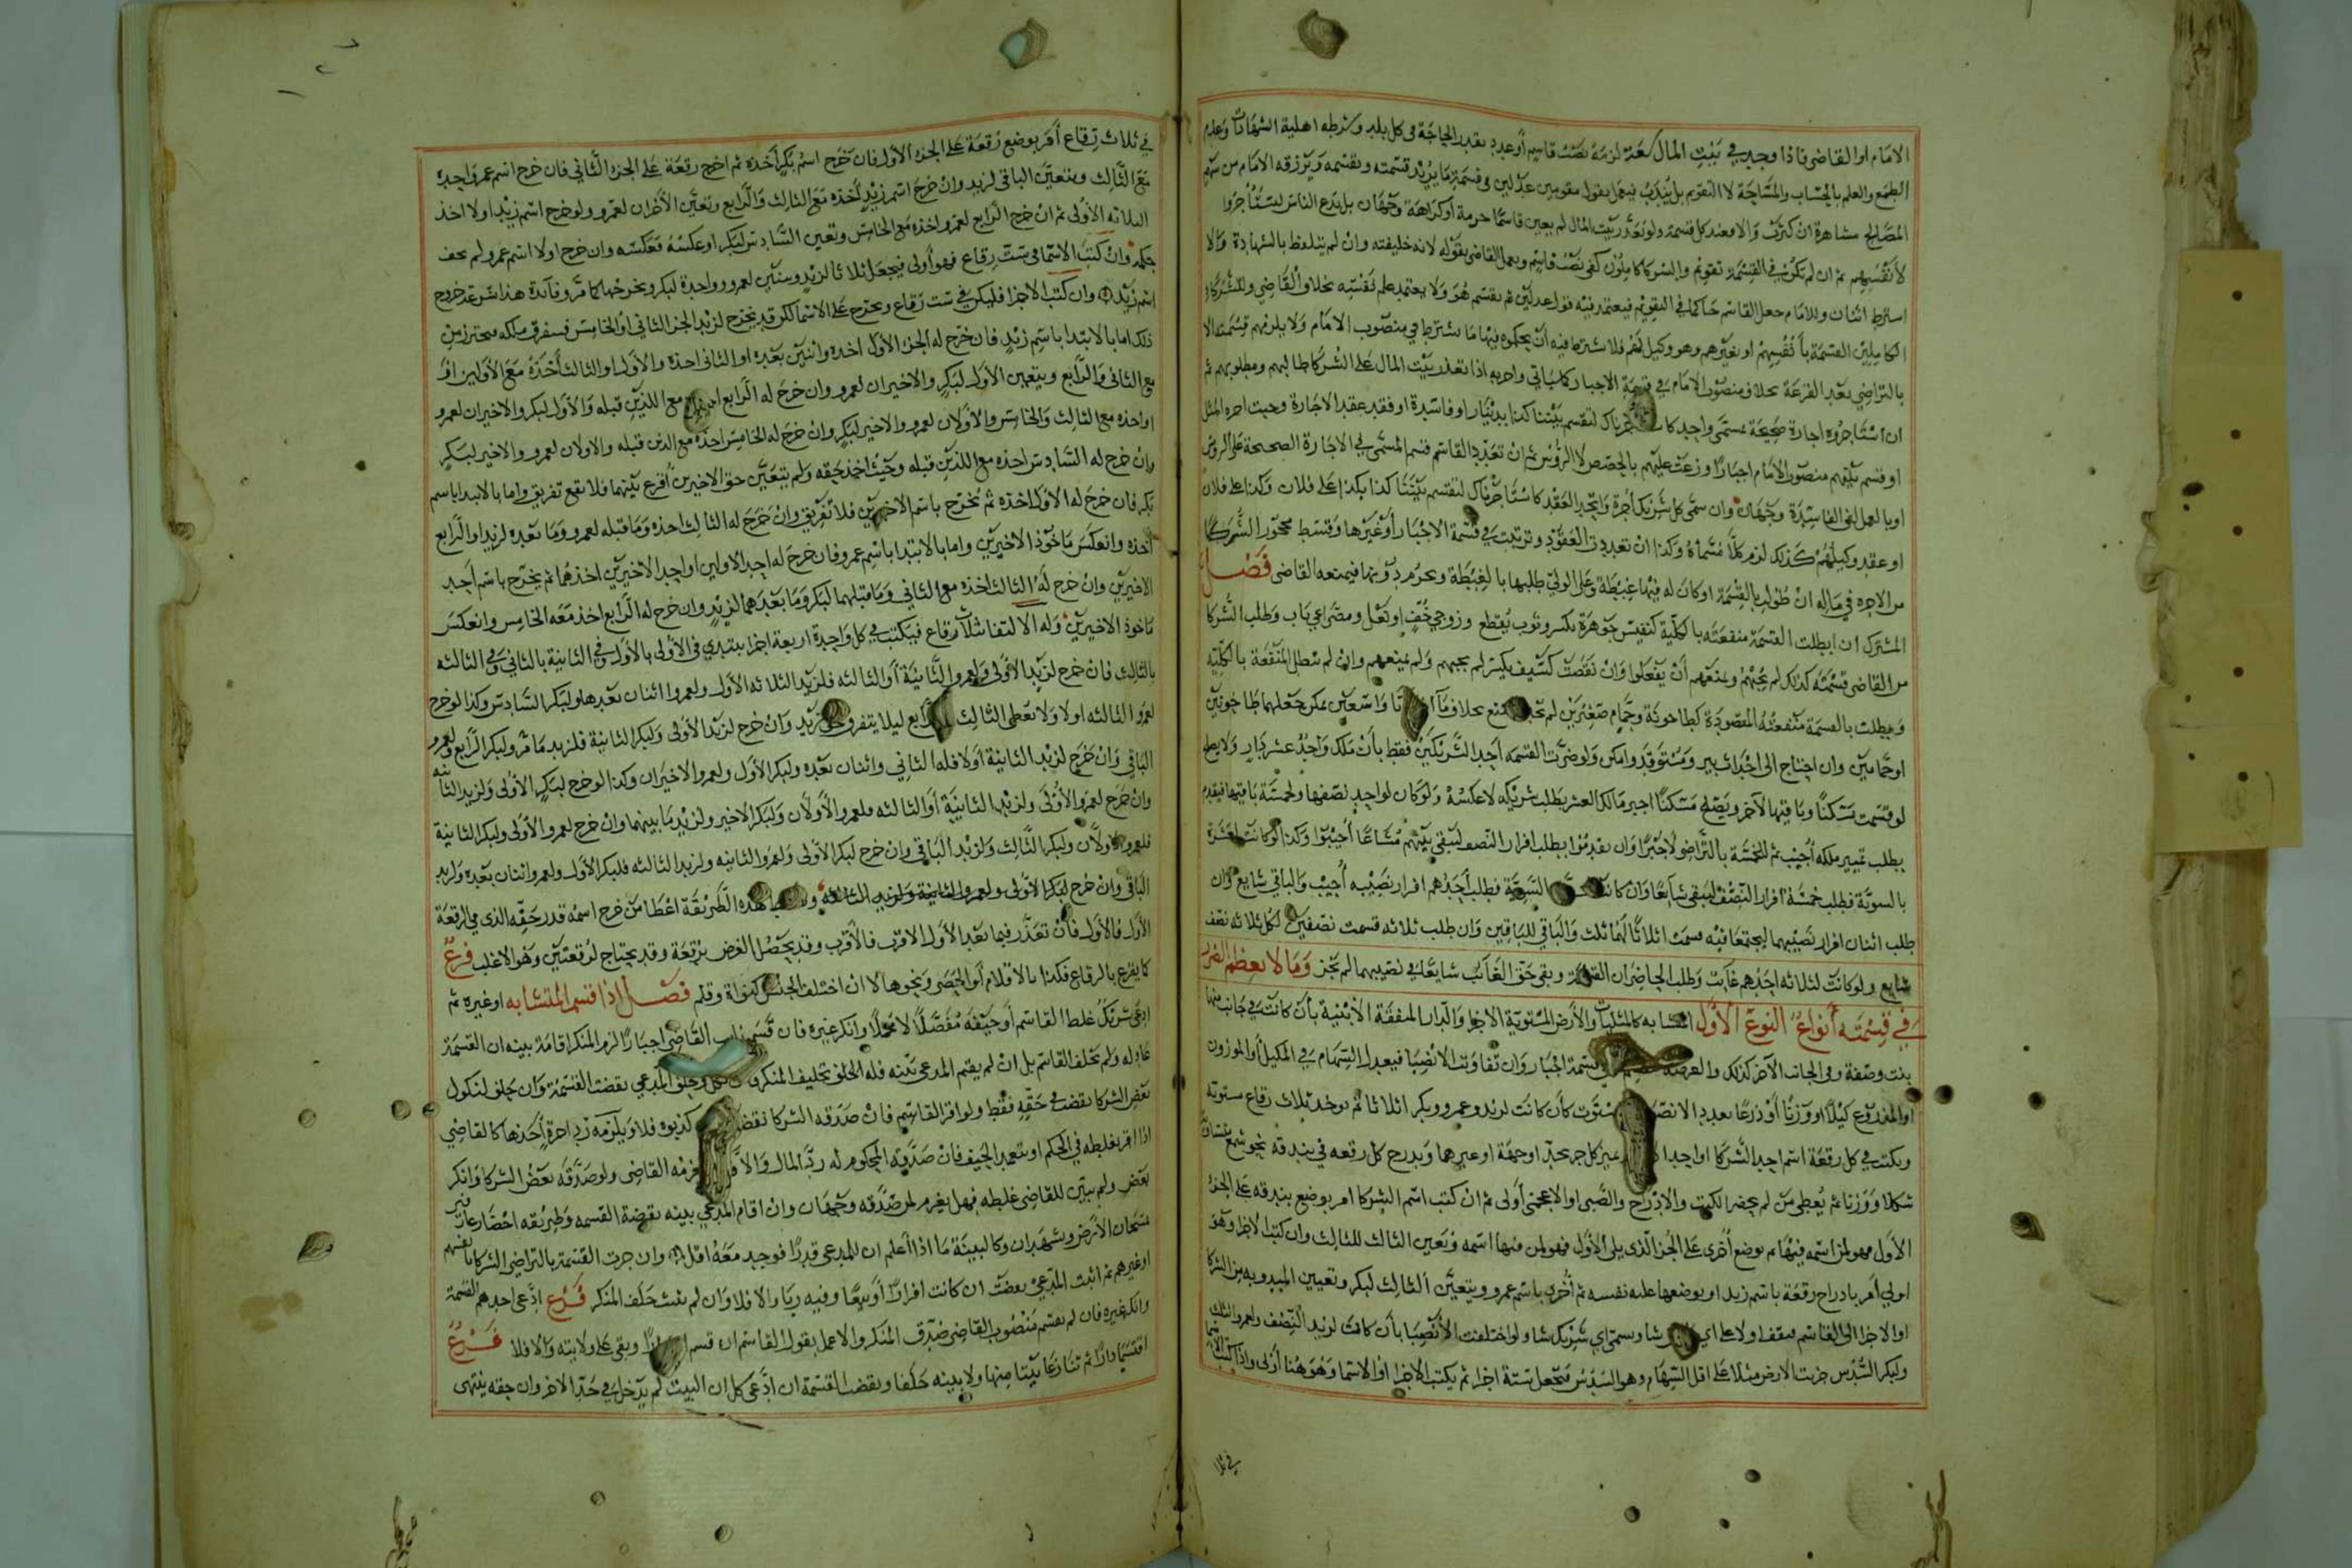 الامام او القاضي فاذا وجد في بيت المال سعة لزمه نصب قاسم أو عدد بقدر الحاجة في كل بلد وشرطه اهلية الشهادات وعدم
الطمع والعلم بالحساب والمساحة لا التقويم بل يندب فيعمل بقول مقومين عدلين وقسمة ما يزيد قسمته وتقسمه ويرزقه الامام من سهم
المصالح مشاهرة ان كثرت والا فعند كل قسمة ولو تعذر بيت المال لم يعين قاسما حرمة أو كراهة وجهان بل يدع الناس ليستأجروا
لأنفسهم ثم ان لم يكن في القسمة تقويم والشركا كاملون كفى نصب قاسم ويعمل القاضي بقوله لانه خليفته وان لم يتلفظ بالشهادة والا
اشترط اثنان وللامام جعل القاسم حاكما في التقويم فيعتمد فيه قول عدلين ثم يقسم هو ولا يعتمد علم نفسه بخلاف القاضي وللشركا
الكاملين القسمة بأنفسهم او بغيرهم وهو وكيل لهم فلا يشترط فيه ان يحكموه فيها ما يشترط في منصوب الامام ولا يلزمهم قسمته الا
بالتراضي بعد القرعة بخلاف منصوب الامام في قسمة الاجبار كما سياتي واجرته اذا تعذر بيت المال على الشركا طالبهم ومطلوبهم ثم
ان استأجروه اجارة صحيحة بمسمى واحد لتقسم بيننا كذا بدينار او فاسدة او فقد عقد الاجارة وجبت اجرة المثل
او قسم بينهم منصوب الامام اجبارا وزعت عليهم بالحصص لا الرؤس ثم ان تعدد القاسم قسم المسمى في الاجارة الصحيحة على الروس
او بالعمل ففي الفاسدة وجهان وان سمى كل شريك أجرة واتحد العقد كاستأجرناك لتقسم بيننا كذا بكذا على فلان وكذا على فلان
او عقد وكيلهم كذلك لزم كلا مسماه وكذا ان تعددت العقود وترتبت في قسمة الاجبار أو غيرها وقسط محجور الشركا
من الاجرة في ماله ان طولب بالقسمة او كان له فيها غبطة وعلى الولي طلبها بالغبطة ويحرم دونها فيمنعه القاضي فصل
المشترك ان ابطلت القسمة منفعته بالكلية كنفيس جوهرة تكسر وثوب يقطع وزوجي خف او نعل ومصراعي باب وطلب الشركا
من القاضي قسمته كذلك لم يجبهم ويمنعهم أن يفعلوا وان نقصت كسيف يكسر لم يجبهم ولم يمنعهم وان لم تبطل المنفعة بالكلية
وبطلت بالقسمة منفعته المقصودة كطاحونة وحمام صغيرين لم بخلاف ما واسعين يمكن جعلهما طاحونتين
او حمامين وان احتاج الى احداث بير ومستوقد وامكن ولو ضرت القسمة أحد الشريكين فقط بأن ملك واحد عشر دار ولا يصلح
لو قسمت مسكنا وباقيها لآخر ويصلح مسكنا اجبر مالك العشر بطلب شريكه لا عكسه ولو كان لواحد نصفها ولخمسة باقيها فيقدم
بطلب تمييز ملكه أجيب ثم للخمسة بالتراضي لا جبرا وان تقدموا بطلب افراز النصف ليبقى بينهم مشاعا أجيبوا وكذا لو كانت لعشرة
بالسوية فطلب خمسة افراز النصف ليبقى شائعا وان كانت السوية فطلب أحدهم افراز نصيبه أجيب والباقي شايع وان
طلب اثنان افراز نصيبهما ليجتمعا فيه قسمت اثلاثا لهما ثلث والباقي للباقين وان طلب ثلاثه قسمت نصفين لكل ثلاثه نصف
شايع ولو كانت لثلاثه احدهم غايب وطلب الحاضران القسمة وبقى حق الغائب شايعا في نصيبهما لم يجز وما لا يعظم الضرر
في قسمته أنواع النوع الأول المتشابه كالمثليات والأرض المستوية الاجزا والدار المتفقة الأبنية بأن كانت في جانب منها
بيت وصفة وفي الجانب الآخر كذلك والعرصة قسمة اجبار وان تفاوتت الانصبا فيعدل السهام في المكيل أو الموزون
او المذروع كيلا او وزنا أو ذرعا بعدد الانصبا استوت كأن كانت لزيد وعمرو وبكر اثلاثا ثم توخذ ثلاث رقاع مستوية
ويكتب في كل رقعة اسم احد الشركا او احد الاجزا مميز كل جزء بحد او جهة او غيرهما ويدرج كل رقعة في بندقة نحو شمع متساوية
شكلا ووزنا ثم يعطى من لم يحضر الكتب والادراج والصبي او الاعجمي أولى ثم ان كتب اسم الشركا امر بوضع بندقه على الجزء
الأول فهو لمن اسمه فيها ثم بوضع أخرى على الجزء الذي يلي الأول فهو لمن فيها اسمه وتعين الثالث للثالث وان كتب الاجزا وهو
اولى أمر بادراج رقعة باسم زيد او بوضعها عليه نفسه ثم أخرى باسم عمرو ويتعين الثالث لبكر وتعيين المبدو به من الشركا
او الاجزا الى القاسم فيقف اولا على اي شا ويسمي اي شريك شا ولو اختلفت الأنصبا بأن كانت لزيد النصف ولعمرو الثلث
ولبكر السدس جزيت الارض مثلا على اقل السهام وهو السدس فتجعل ستة اجزاء ثم يكتب الاجزا او الاسما وهو هنا أولى واذا كتب الاسما
في ثلا
في ثلاث رقاع أمر بوضع رقعة على الجزء الأول فان خرج اسم بكر أخذه ثم اخرج رقعة على الجزء الثاني فان خرج اسم عمرو أخذه
مع الثالث ويتعين الباقي لزيد وان خرج اسم زيد أخذه مع الثالث والرابع وتعين الأخران لعمرو ولو خرج اسم زيد اولا اخذ
الثلاثه الأولى ثم ان خرج الرابع لعمرو اخذه مع الخامس وتعين السادس لبكر او عكسه فعكسه وان خرج اولا اسم عمرو لم يخف
حكمه وان كتب الاسما في ست رقاع فهو أولى فيجعل ثلاثا لزيد وستين لعمرو وواحدة لبكر ونخرجها كما مر وفائدة هذا سرعة خروج
اسم زيد وان كتب الاجزا فليكن في ست رقاع ويخرج على الاسما لكن قد يخرج لزيد الجزء الثاني أو الخامس فيتفرق ملكه فيحترز من
ذلك اما بالابتدا باسم زيد فان خرج له الجزء الأول اخذه واثنين بعده او الثاني اخذه والأول او الثالث أخذه مع الأولين او
مع الثاني والرابع ويتعين الأول لبكر والاخيران لعمرو وان خرج له الرابع اخذه مع اللذين قبله والأول لبكر والاخيران لعمرو
او اخذه مع الثالث والخامس والأولان لعمرو والاخير لبكر وان خرج له الخامس اخذه مع الذين قبله والاولان لعمرو والاخير لبكر
وان خرج له السادس اخذه مع اللذين قبله وحيث اخذ حقه ولم يتعين حق الاخيرين أقرع بينهما فلا يقع تفريق واما بالابتدا باسم
بكر فان خرج له الأول اخذه ثم يخرج باسم الاخيرين فلا تفريق وان خرج له الثالث اخذه وما قبله لعمرو وما بعده لزيد او الرابع
أخذه وانعكس مأخوذ الاخيرين واما بالابتدا باسم عمرو فان خرج له احد الاولين او احد الاخيرين اخذهما ثم يخرج باسم أحد
الاخيرين وان خرج له الثالث اخذه مع الثاني وما قبلهما لبكر وما بعدهما لزيد وان خرج له الرابع اخذ معه الخامس وانعكس
مأخوذ الاخيرين وله الالتفا بثلاث رقاع فيكتب في كل واحدة اربعة اجزا يبتدي في الأولى بالأول وفي الثانية بالثاني وفي الثالثه
بالثالث فان خرج لزيد الأولى ولعمرو الثانية أو الثالثه فلزيد الثلاثه الأول ولعمرو اثنان بعدها ولبكر السادس وكذا لو خرج
لعمرو الثالثه اولا ولا تعطى الثالث الرابع ليلا يتفرق حق زيد وان خرج لزيد الأولى ولبكر الثانية فلزيد ما مر ولبكر الرابع ولعمرو
الباقي وان خرج لزيد الثانية أولا فله الثاني واثنان بعده ولبكر الأول ولعمرو الاخيران وكذا لو خرج لبكر الأولى ولزيد الثانيه
وان خرج لعمرو الأولى ولزيد الثانية أو الثالثه فلعمرو الأولان ولبكر الاخير ولزيد ما بينهما وان خرج لعمرو الأولى ولبكر الثانية
فلعمرو الاولان ولبكر الثالث ولزيد الباقي وان خرج لبكر الأولى ولعمرو الثانيه ولزيد الثالثه فلبكر الأول ولعمرو اثنان بعده ولزيد
الباقي وان خرج لبكر الأولى ولعمرو الثانية ولزيد الثالثة هذه الطريقة اعطا من خرج اسمه قدر حقه الذي في الرقعة
الأول فالأول فان تعذر فيما بعد الأول الاقرب فالأقرب وقد يحصل الغرض برقعة وقد يحتاج لرقعتين وهو الاغلب فرع
كما يقرع بالرقاع فكذا بالاقلام أو الحصى ونحوها لا ان اختلف الجنس كنواة وقلم فصل اذا قسم المتشابه او غيره ثم
ادعى شريك غلط القاسم أو حيفه مفصلا لا مجملا وانكر غيره فان قسم نايب القاضي اجبارا لزم المنكر اقامة بينه ان القسمة
عادله ولم يحلف القاسم بل ان لم يقم المدعي بينه فله الحلف تحليف المنكر نكل وحلف المدعي نقضت القسمة وان حلف لنكول
بعض الشركا نقضت في حقه فقط ولو اقر القاسم فان صدقه الشركا نقضت كذبوه فلا ويلزمه رد اجرة أخذها كالقاضي
اذا اقر بغلطه في الحكم او بتعمد الحيف فان صدقه المحكوم له رد المال والا غرمه القاضي ولو صدقه بعض الشركا وانكر
بعض ولم يبين للقاضي غلطه فهل يغرم لمن صدقه وجهان وان اقام المدعي بينه نقضة القسمه وطريقه احضار عارفين
يمسحان الأرض ويشهدان وكالبينة ما اذا أعلم ان للمدعي قدرا فوجد معه اقل وان جرت القسمة بالتراضي الشركا بأنفسهم
او غيرهم ثم اثبت المدعي نقضت ان كانت افرازا أو بيعا وفيه ربا والا فلا وان لم يثبت حلف المنكر فرع ادعى احدهم القسمة
وانكر غيره فان لم يقسم منصوب القاضي صدق المنكر والا عمل بقول القاسم ان قسم وبقى على ولايته والا فلا فرع
اقتسما دارا ثم تنازعا بيتا منها ولا بينه حلفا ونقضت القسمة ان ادعى كل ان البيت لم يدخل في حد الاخر وان حقه ينتهى